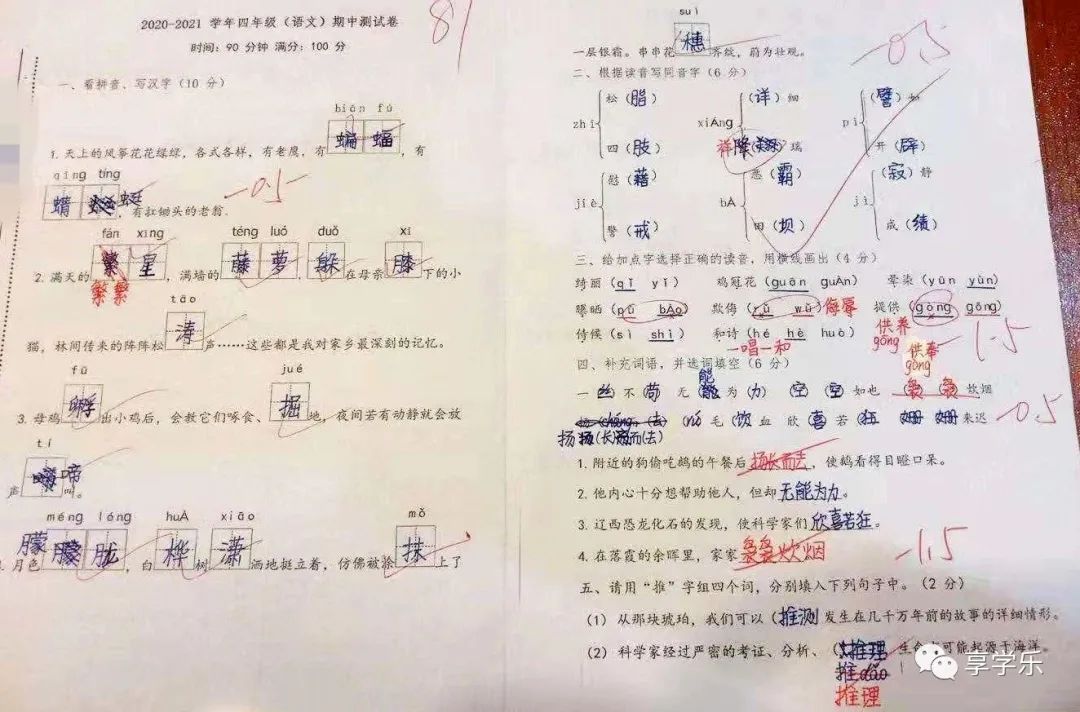 2020-2021 学年四年级（语文）期中测试卷
81
时间：90 分钟 满分：100 分
一、看拼音、写汉字（10 分）
biān fú
1. 天上的风筝花花绿绿，各式各样，有老鹰，有 蝙 蝠 ，有
qīng tíng
蜻 蜓 ，有扛锄头的老翁.
-0.5
fán xīng téng luó duǒ xī
2. 满天的 繁 星 ，满墙的 藤 萝 . 躲 在母亲 膝 下的小
繁 繁
tāo
猫，林间传来的阵阵松 涛 声……这些都是我对家乡最深刻的记忆。
fū jué
3. 母鸡 孵 出小鸡后，会教它们啄食、 掘 地，夜间若有动静就会放
tí
声 啼 叫。
méng lóng huà xiāo mǒ
月色 朦 胧 ，白 桦 树 潇 洒地挺立着，仿佛被涂 抹 上了
suì
一层银霜。串串花 穗 齐绽，蔚为壮观。
-0.5
二、根据读音写同音字（6 分）
松（脂） （详）细 （譬）如
zhī xiáng pì
四（肢） 祥 （ ）瑞 开（辟）
慰（藉） 恶（霸） （寂）静
jiè bà jì
警（戒） 田（坝） 成（绩）
三、给加点字选择正确的读音，用横线画出（4 分）
绮丽（qǐ yǐ） 鸡冠花（guān guàn） 晕染（yūn yùn）
曝晒（pù bào） 欺侮（rǔ wǔ） 侮辱 提供（gòng gōng）
侍候（sì shì） 和诗（hé hè huò） 供养 gōng
一唱一和 供奉 gòng
-1.5
四、补充词语，并选词填空（6 分）
一 丝 不 苟 无 能 为（力） （空）（空）如也 （袅）（袅）炊烟
毛（饮）血 欣（喜）若 狂 姗 姗 来迟
-0.5
扬（长）而（去）
1. 附近的狗偷吃鹅的午餐后扬长而去，使鹅看得目瞪口呆。
2. 他内心十分想帮助他人，但却无能为力。
3. 辽西恐龙化石的发现，使科学家们欣喜若狂。
-1.5
4. 在落霞的余晖里，家家袅袅炊烟
五、请用“推”字组四个词，分别填入下列句子中。（2 分）
（1）从那块琥珀，我们可以（推测 发生在几千万年前的故事的详细情形。
（2）科学家经过严密的考证、分析、（推理 生命 可能起源于海洋。
推dǎo
推理
享学乐